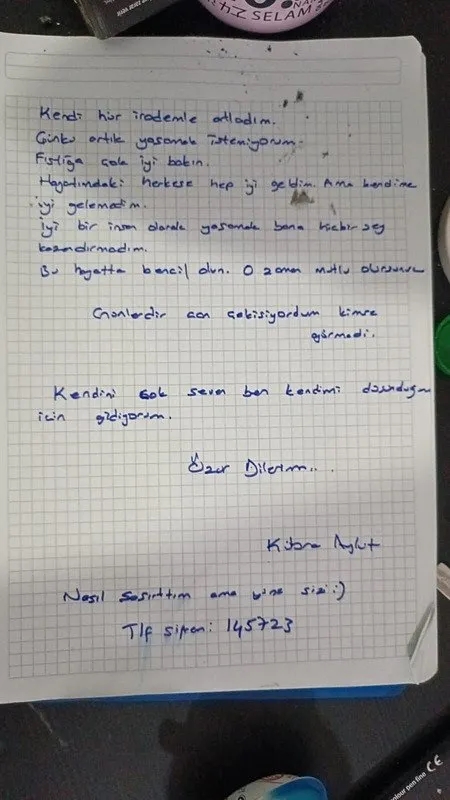 SELAM
Kendi hür irademle atladım.
Çünkü artık yaşamak istemiyorum.
Fıstığa çok iyi bakın.
Hayatımdaki herkese hep iyi geldim. Ama kendime
iyi gelemedim.
İyi bir insan olarak yaşamak bana hiçbir şey
kazandırmadım.
Bu hayatta bencil olun. O zaman mutlu olursunuz
Günlerdir acı çekisiyordum kimse
görmedi.
Kendini çok seven ben kendimi düşündüğüm
için gidiyorum.
Özür Dilerim...
Kübra Aykut
Nasıl şaşırttım ama yine sizi :)
Tlf şifrem: 145723